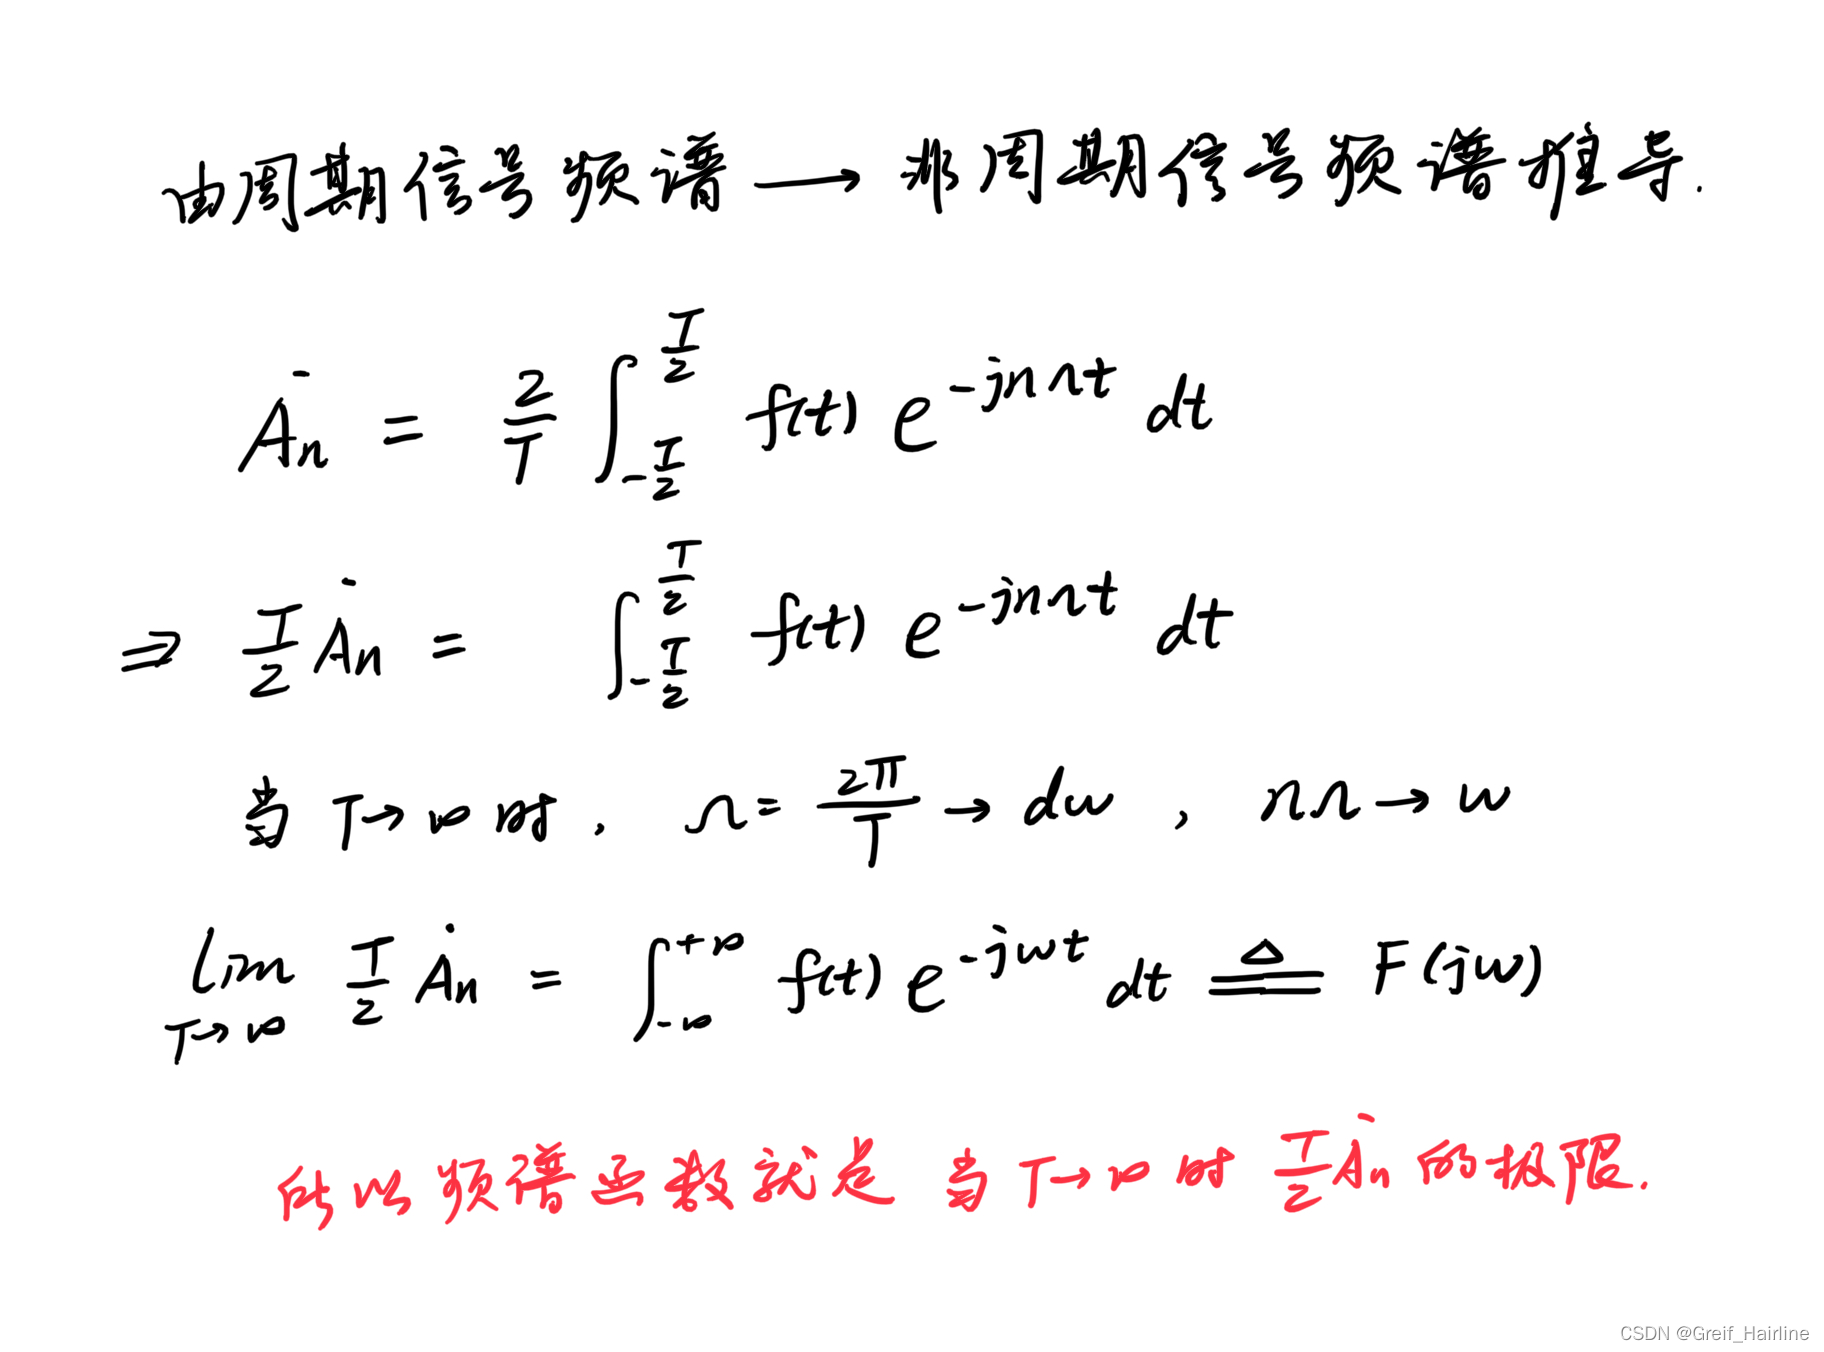 由周期信号频谱 → 非周期信号频谱推导.
Ȧn = 2/T ∫_{-T/2}^{T/2} f(t) e^{-jnΩt} dt
⇒ T/2 Ȧn = ∫_{-T/2}^{T/2} f(t) e^{-jnΩt} dt
当 T→∞ 时, Ω = 2π/T → dw , nΩ → w
lim_{T→∞} T/2 Ȧn = ∫_{-∞}^{+∞} f(t) e^{-jwt} dt ≜ F(jw)
所以频谱函数就是 当 T→∞ 时 T/2 Ȧn 的极限.
CSDN @Greif_Hairline